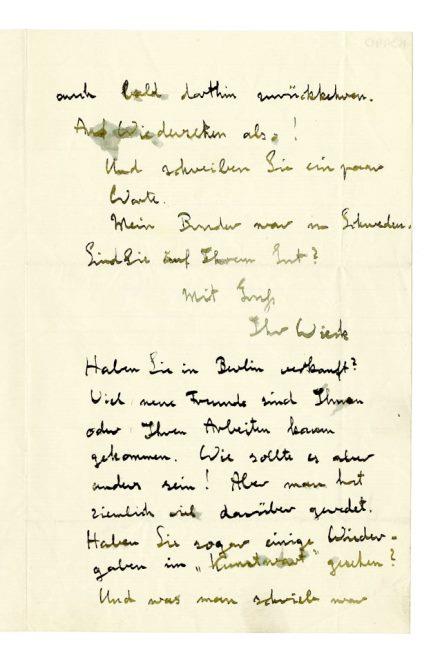 auch bald dorthin zurückkehren.
Auf Wiedersehen also!
Und schreiben Sie ein paar
Worte.
Mein Bruder war in Schweden.
Sind Sie auf Ihrem Gut?
Mit Gruß
Ihr
Haben Sie in Berlin verkauft?
Viel neue Freunde sind Ihnen
oder Ihren Arbeiten kaum
gekommen. Wie sollte es aber
anders sein! Aber man hat
ziemlich viel darüber geredet.
Haben Sie sogar einige Wieder-
gaben im „Kunstwart" gesehen?
Und was man schrieb war